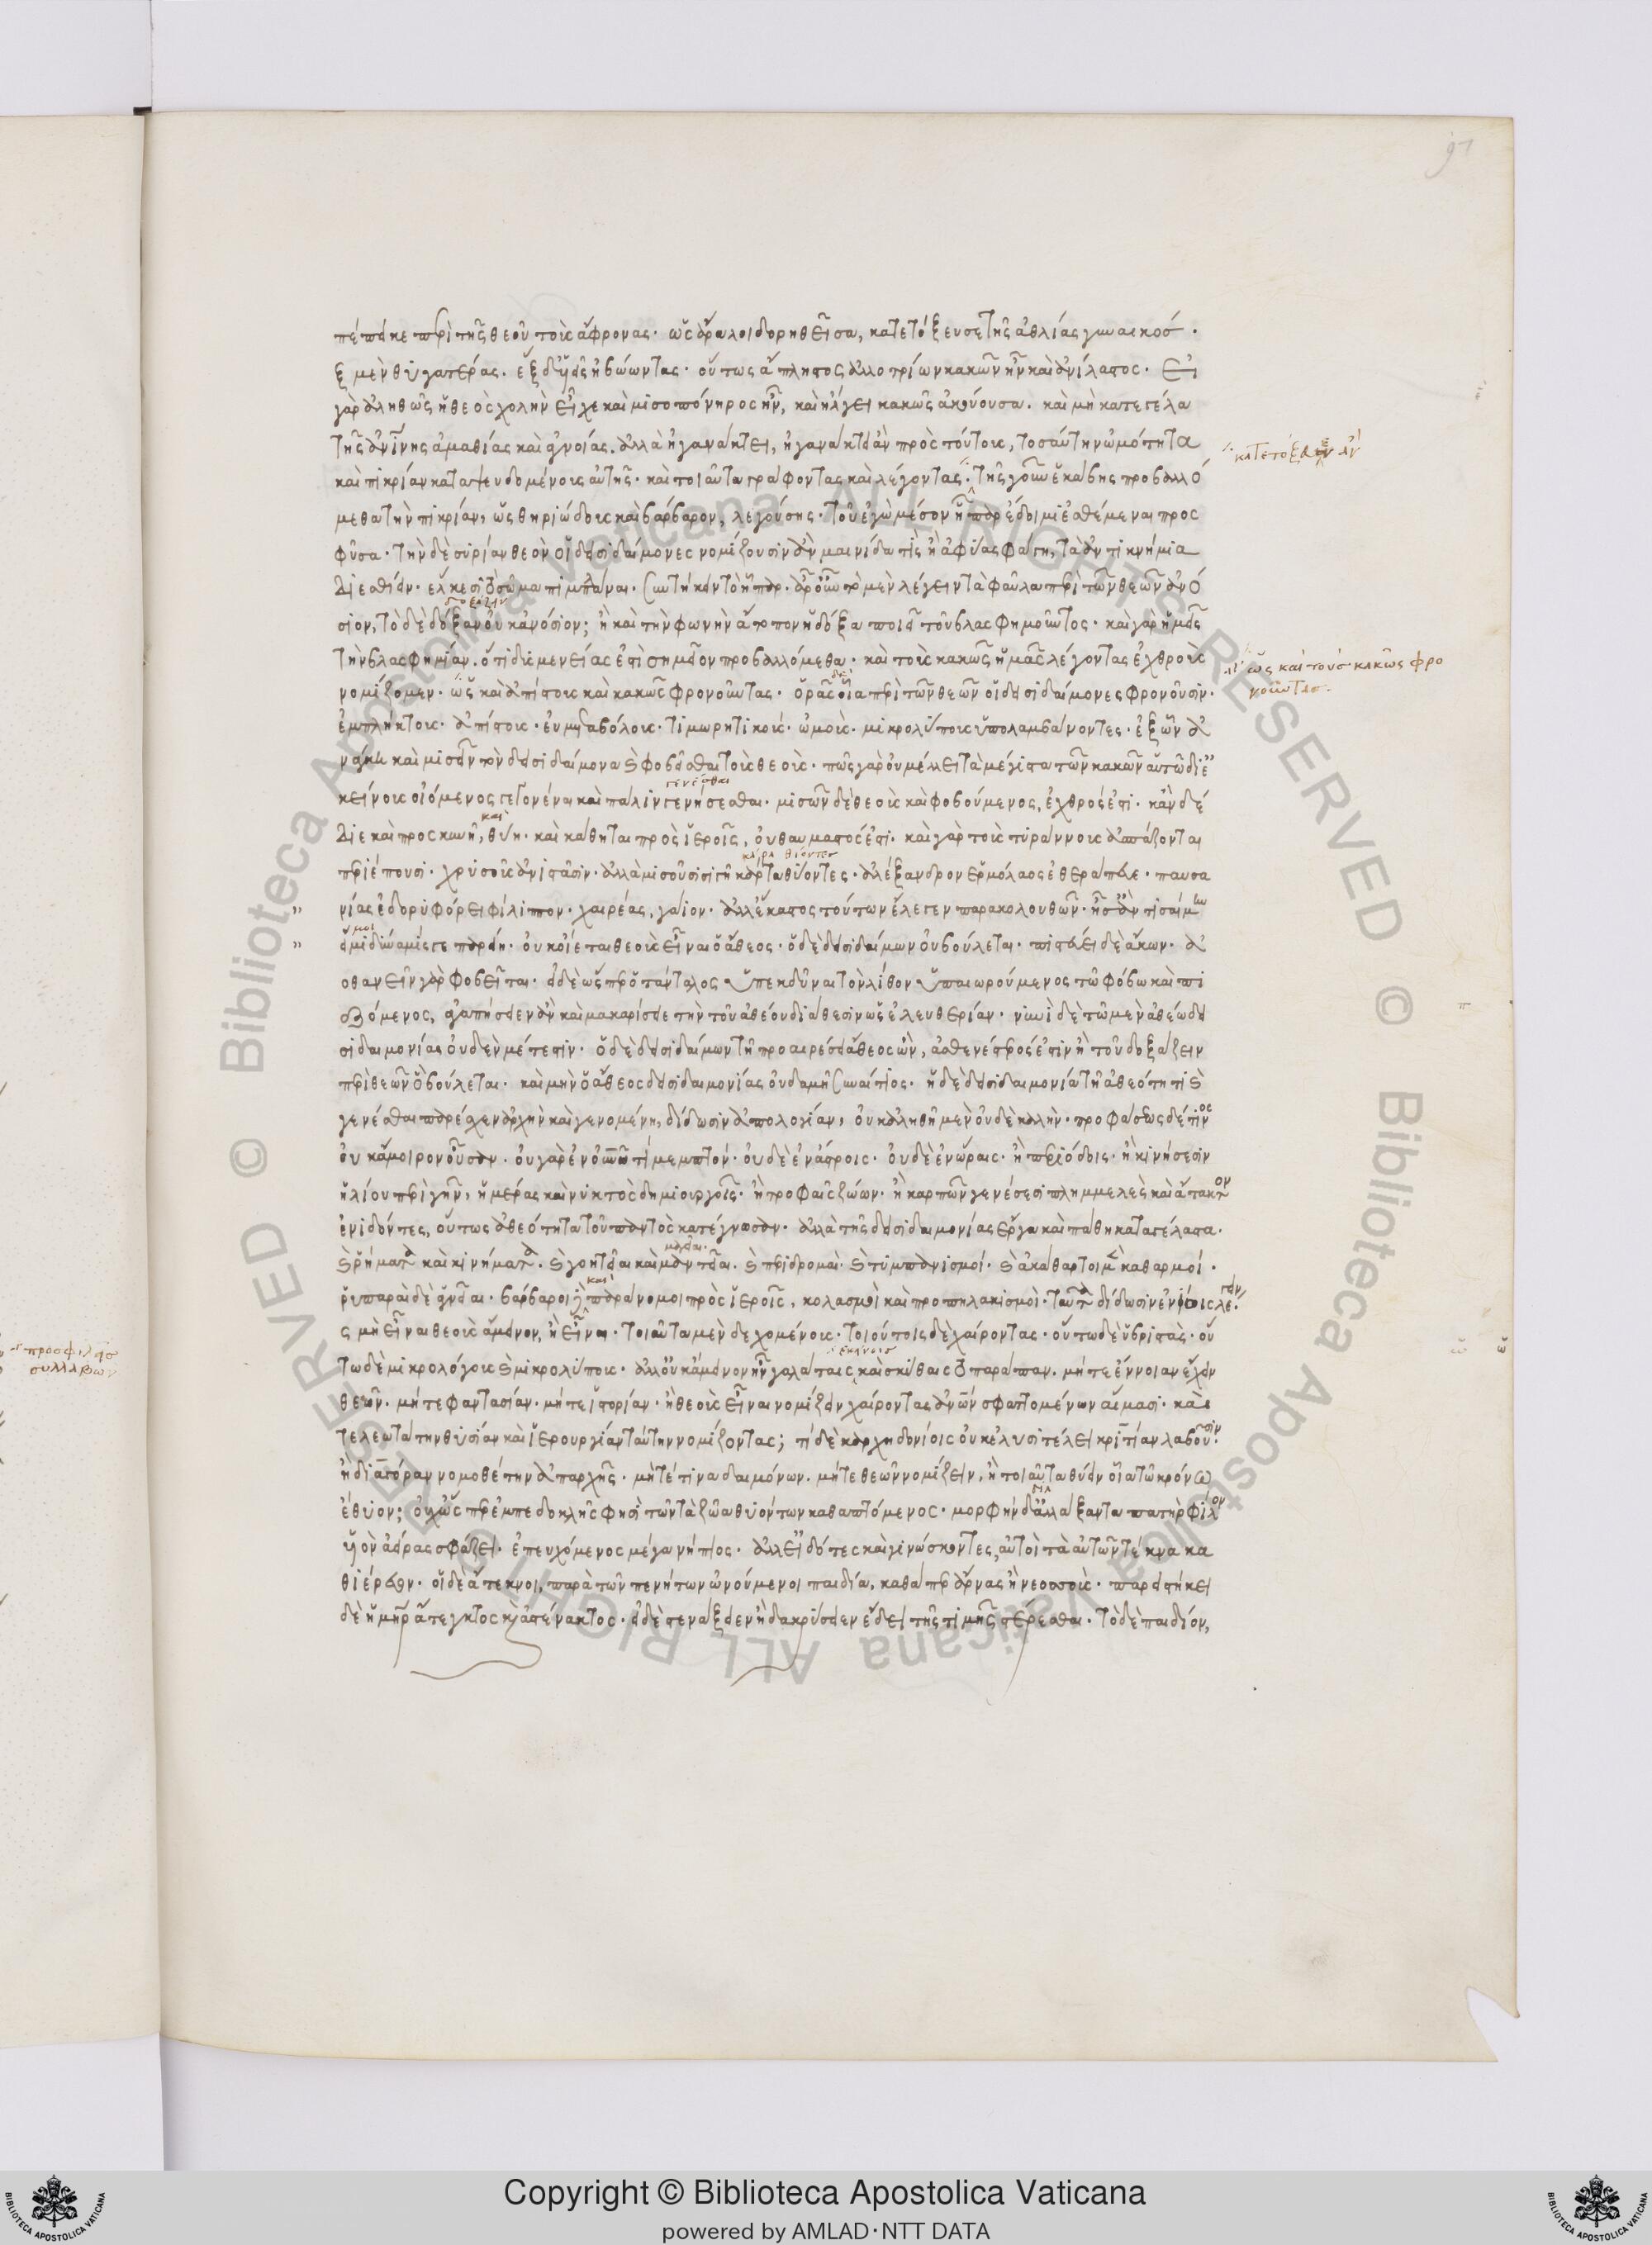 πέπεικε περὶ τῆς θεοῦ τοὺς ἄφρονας· ὡς ἄρα λοιδορηθεῖσα, κατετόξευσε τῆς ἀθλίας γυναικός·
ἓξ μὲν θυγατέρας. ἓξ δ' υἱεῖς ἡβώοντας· οὕτως ἄπληστος ἀλλοτρίων κακῶν ἦν καὶ ἀνίλαστος· Εἰ
γὰρ ἀληθῶς ἡ θεὸς χολὴν εἶχε καὶ μισοπόνηρος ἦν, καὶ ἤλγει κακῶς ἀκούουσα. καὶ μὴ κατεγέλα
τῆς ἀνίνης ἀμαθίας καὶ ἀγνοίας. ἀλλὰ ἠγανάκτει, ἠγανάκτει ἂν πρὸς τούτοις, τοσαύτην ὠμότητα
καὶ πικρίαν καταψευδομένοις αὐτῆς· καὶ τοιαῦτα γράφοντας καὶ λέγοντας· τῆς γοῦν ἑκάβης προβαλλό
∴ κατετόξευεν ἄν
μεθα τὴν πικρίαν, ὡς θηριώδους καὶ βάρβαρον, λεγούσης· τοῦ ἐγὼ μέσον ἧπαρ ἔδοιμι ἐσθέμεναι προς
φῦσα· τὴν δὲ συρίαν θεὸν οἱ δεισιδαίμονες νομίζουσιν ἂν μαινίδα τὶς ἢ ἀφύας φάγῃ, τὰ ἀντικνήμια
διεσθίειν· ἕλκεσι τὸ σῶμα πιμπλάναι· συντήκειν τὸ ἧπαρ· ἆρ' οὖν τὸ μὲν λέγειν τὰ φαῦλα περὶ τῶν θεῶν ἀνό
σιον, τὸ δὲ δόξαν οὐκ ἀνόσιον; ἢ καὶ τὴν φωνὴν ἄτοπον ἡ δόξα ποιεῖ τοῦ βλασφημοῦντος· καὶ γὰρ ἡμεῖς
δοξάζειν
τὴν βλασφημίαν. ὅτι δυσμενείας ἐστὶ σημεῖον προβαλλόμεθα· καὶ τοὺς κακῶς ἡμᾶς λέγοντας ἐχθροὺς
νομίζομεν· ὡς καὶ ἀπίστους καὶ κακῶς φρονοῦντας· ὁρᾶς οἷα περὶ τῶν θεῶν οἱ δεισιδαίμονες φρονοῦσιν·
ὡς καὶ τοὺς κακῶς φρο
νοῦντας.
ἐμπλήκτους· ἀπίστους· εὐμεταβόλους· τιμωρητικούς· ὠμοὺς· μικρολύπους ὑπολαμβάνοντες· ἐξ ὧν ἀ
νάγκη καὶ μισεῖν τὸν δεισιδαίμονα καὶ φοβεῖσθαι τοὺς θεοὺς· πῶς γὰρ οὐ μέλλει τὰ μέγιστα τῶν κακῶν αὑτῷ δι' ἐ
κείνους οἰόμενος γεγονέναι καὶ πάλιν γενήσεσθαι· μισῶν δὲ θεοὺς καὶ φοβούμενος, ἐχθρός ἐστι· κἂν δέ
γενέσθαι
διε καὶ προσκυνῇ, θύῃ· καὶ κάθηται πρὸς ἱεροῖς, οὐ θαυμαστόν ἐστι· καὶ γὰρ τοὺς τυράννους ἀσπάζονται
καὶ
περιέπουσι· χρυσοῦς ἀνιστᾶσιν· ἀλλὰ μισοῦσι σιγῇ κάρτα θύοντες· ἀλέξανδρον ἑρμόλαος ἐθεράπευε· παυσα
κάρα θύοντες
νίας ἐδορυφόρει φίλιππον· χαιρέας, γάϊον· ἀλλ' ἕκαστος τούτων ἔλεγεν παρακολουθῶν· ἦ σ' ἂν τισαίμην
εἴ μοι δύναμίς γε παρείη· οὐκ οἴεται θεοὺς εἶναι ὁ ἄθεος· ὁ δὲ δεισιδαίμων οὐ βούλεται· πιστεύει δὲ ἄκων· ἀ
ποθανεῖν γὰρ φοβεῖται· εἰ δὲ ὥσπερ ὁ τάνταλος ὑπεκδῦναι τὸν λίθον ὑπαιωρούμενος τῷ φόβῳ καὶ πι
εζόμενος, ἀγαπήσειεν ἂν καὶ μακαρίσειε τὴν τοῦ ἀθέου διάθεσιν ὡς ἐλευθερίαν· νυνὶ δὲ τῷ μὲν ἀθέῳ δει
σιδαιμονίας οὐδὲν μέτεστιν· ὁ δὲ δεισιδαίμων τῇ προαιρέσει ἄθεος ὢν, ἀσθενέστερός ἐστιν ἢ τοῦ δοξάζειν
περὶ θεῶν ὃ βούλεται· καὶ μὴν ὁ ἄθεος δεισιδαιμονίας οὐδαμῇ συναίτιος· ἡ δὲ δεισιδαιμονία τῇ ἀθεότητι καὶ
γενέσθαι παρέσχεν ἀρχὴν καὶ γενομένῃ, δίδωσιν ἀπολογίαν, οὐκ ἀληθῆ μὲν οὐδὲ καλὴν· προφάσεως δέ τινος
οὐκ ἄμοιρον οὖσαν· οὐ γὰρ ἐν οὐνῷ τι μεμπτόν· οὐδὲ ἐν ἄστροις· οὐδὲ ἐν ὥραις· ἢ περιόδοις· ἢ κινήσεσιν
ἡλίου περὶ γῆν, ἡμέρας καὶ νυκτὸς δημιουργοῖς· ἢ τροφαῖς ζώων· ἢ καρπῶν γενέσεσι πλημμελὲς καὶ ἄτακτον
ἐνιδόντες, οὕτως ἀθεότητα τοῦ παντὸς κατέγνωσαν· ἀλλὰ τῆς δεισιδαιμονίας ἔργα καὶ πάθη καταγέλαστα·
καὶ ῥήματα καὶ κινήματα. καὶ γοητεῖαι καὶ μαντεῖαι. καὶ περιδρομαὶ· καὶ τυμπανισμοί· καὶ ἀκάθαρτοι μὲν καθαρμοί·
μαγεῖαι·
ῥυπαραὶ δὲ ἁγνεῖαι· βάρβαροι καὶ παράνομοι πρὸς ἱεροῖς, κολασμοὶ καὶ προπηλακισμοὶ· ταῦτα δίδωσιν ἐνίοις λέγειν
ὡς μὴ εἶναι θεοὺς ἄμεινον, ἢ εἶναι· τοιαῦτα μὲν δεχομένους· τοιούτοις δὲ χαίροντας· οὕτω δὲ ὑβριστὰς· οὕ
τω δὲ μικρολόγους καὶ μικρολύπους· ἀλλ' οὐκ ἄμεινον ἦν γαλάταις καὶ σκύθαις τὸ παράπαν. μήτε ἔννοιαν ἔχειν
ἐκείνοις
θεῶν. μήτε φαντασίαν. μήτε ἱστορίαν· ἢ θεοὺς εἶναι νομίζειν χαίροντας ἀνῶν σφαττομένων αἵμασι· καὶ
τελεωτάτην θυσίαν καὶ ἱερουργίαν ταύτην νομίζοντας; τί δὲ καρχηδονίοις οὐκ ἐλυσιτέλει κριτίαν λαβοῦσιν·
ἢ διαγόραν νομοθέτην ἀπ' ἀρχῆς· μήτέ τινα δαιμόνων. μήτε θεῶν νομίζειν, ἢ τοιαῦτα θύειν οἷα τῷ κρόνῳ
ἔθυον; οὐχ ὥσπερ ἐμπεδοκλῆς φησὶ τῶν τὰ ζῶα θυόντων καθαπτόμενος· μορφὴν δ' ἀλλάξαντα πατὴρ φίλον
υἱὸν ἀείρας σφάζει· ἐπευχόμενος μέγα νήπιος· ἀλλ' εἰδότες καὶ γινώσκοντες, αὐτοὶ τὰ αὑτῶν τέκνα κα
θιέρευον· οἱ δὲ ἄτεκνοι, παρὰ τῶν πενήτων ὠνούμενοι παιδία, καθάπερ ἄρνας ἢ νεοσσοὺς· παρειστήκει
δὲ ἡ μήτηρ ἄτεγκτος καὶ ἀστένακτος· εἰ δὲ στενάξειεν ἢ δακρύσειεν ἔδει τῆς τιμῆς στέρεσθαι· τὸ δὲ παιδίον,
προσφιλὲς
συλλαβων
Copyright © Biblioteca Apostolica Vaticana
powered by AMLAD·NTT DATA